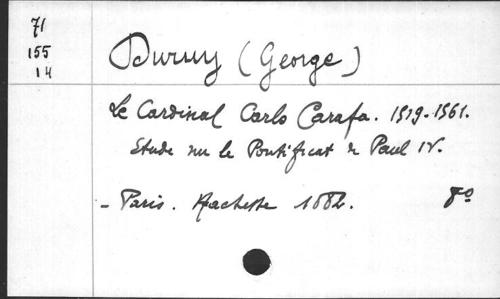 71
155
14
Duruy (George)
Le Cardinal Carlo Carafa. 1519-1561.
Etude sur le Pontificat de Paul IV.
- Paris. Hachette 1882. 8º